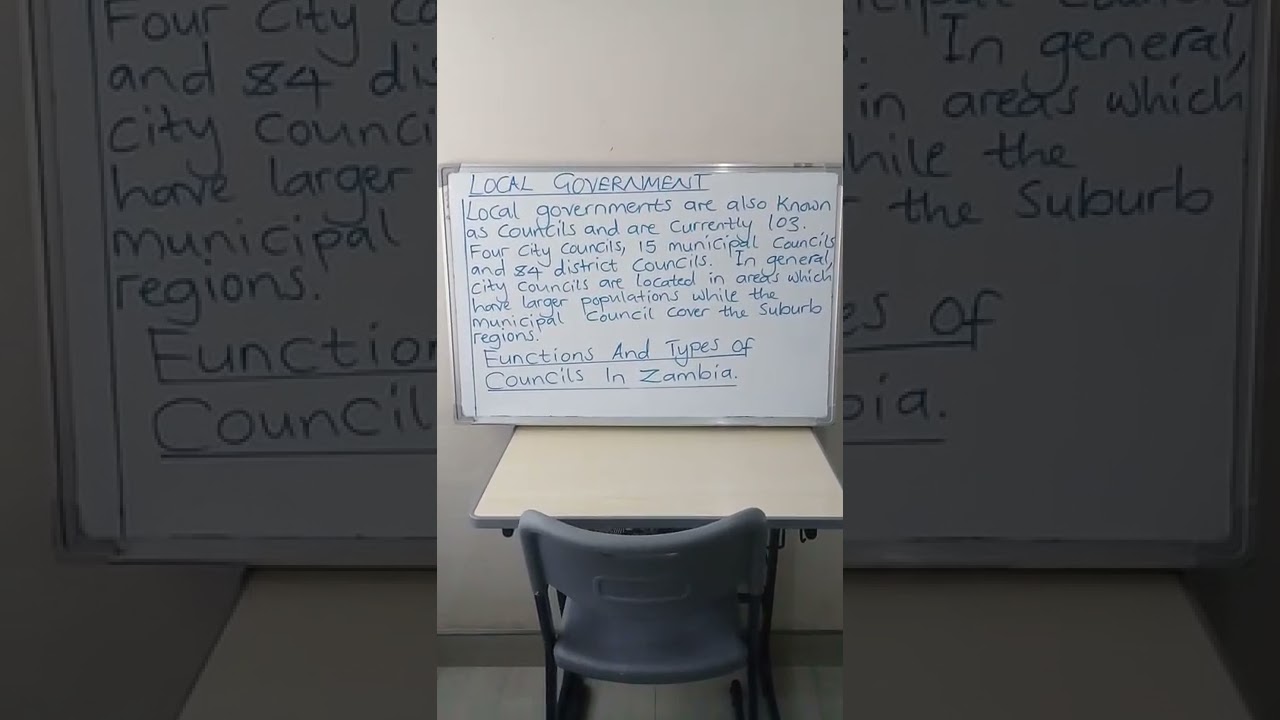 LOCAL GOVERNMENT
Local governments are also known
as Councils and are currently 103.
Four City Councils, 15 municipal Councils
and 84 district Councils. In general,
city Councils are located in areas which
have larger populations while the
municipal Council cover the Suburb
regions.
Functions And Types of
Councils In Zambia.